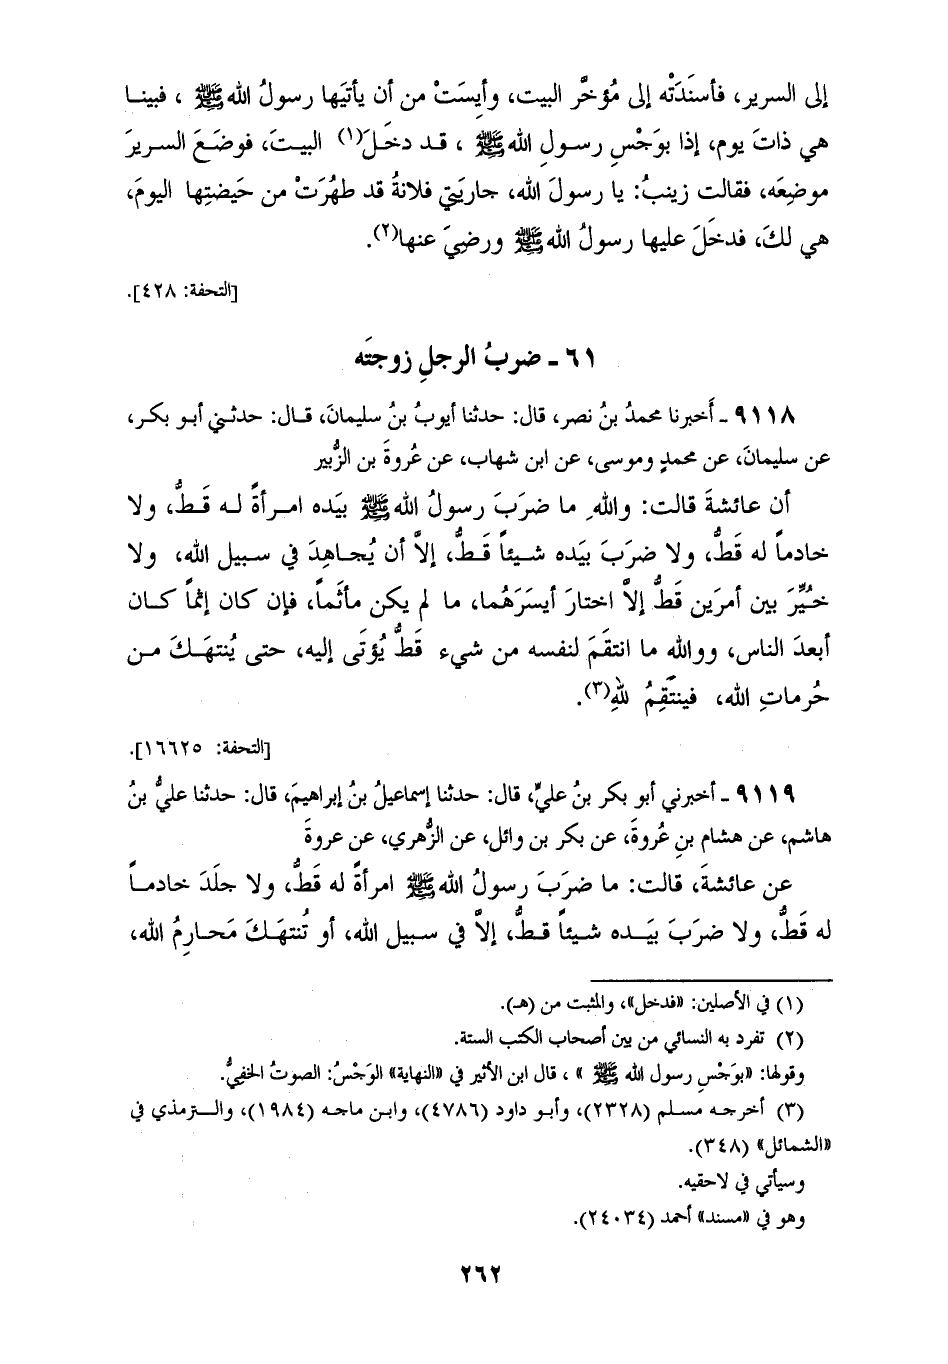 إلى السرير، فأسنَدَتْه إلى مُؤخَّر البيت، وأيِسَتْ من أن يأتيَها رسولُ الله ﷺ ، فبينا
هي ذاتَ يوم، إذا بوَجْسِ رسولِ الله ﷺ ، قد دخَلَ(١) البيتَ، فوضَعَ السريرَ
موضِعَه، فقالت زينبُ: يا رسولَ الله، جاريَتي فلانةُ قد طهُرَتْ من حَيضتِها اليومَ،
هي لكَ، فدخَلَ عليها رسولُ الله ﷺ ورضِيَ عنها(٢).
[التحفة: ٤٢٨].
٦١ ـ ضربُ الرجلِ زوجتَه
٩١١٨ ـ أَخبرنا محمدُ بنُ نصر، قال: حدثنا أيوبُ بنُ سليمانَ، قال: حدثني أبو بكر،
عن سليمانَ، عن محمدٍ وموسى، عن ابن شهاب، عن عُروةَ بن الزُّبير
أن عائشةَ قالت: واللهِ ما ضرَبَ رسولُ الله ﷺ بيَده امرأةً له قَطُّ، ولا
خادماً له قَطُّ، ولا ضرَبَ بيَده شيئاً قَطُّ، إلاَّ أن يُجاهِدَ في سبيل الله، ولا
خُيِّرَ بين أمرَين قَطُّ إلاَّ اختارَ أيسَرَهُما، ما لم يكن مأثَماً، فإن كان إثماً كان
أبعدَ الناس، ووالله ما انتقَمَ لنفسه من شيء قَطُّ يُؤتَى إليه، حتى يُنتهَكَ من
حُرماتِ الله، فينتَقِمُ للهِ(٣).
[التحفة: ١٦٦٢٥].
٩١١٩ ـ أخبرني أبو بكر بنُ عليٍّ، قال: حدثنا إسماعيلُ بنُ إبراهيمَ، قال: حدثنا عليُّ بنُ
هاشم، عن هشام بنِ عُروةَ، عن بكر بن وائل، عن الزُّهري، عن عروةَ
عن عائشةَ، قالت: ما ضرَبَ رسولُ الله ﷺ امرأةً له قطُّ، ولا جلَدَ خادماً
له قَطُّ، ولا ضرَبَ بيَده شيئاً قطُّ، إلاَّ في سبيل الله، أو تُنتهَكَ مَحارِمُ الله،
(١) في الأصلين: «فدخل»، والمثبت من (هـ).
(٢) تفرد به النسائي من بين أصحاب الكتب الستة.
وقولها: «بوَجْسِ رسول الله ﷺ » ، قال ابن الأثير في «النهاية» الوَجْسُ: الصوتُ الخفيُّ.
(٣) أخرجه مسلم (٢٣٢٨)، وأبو داود (٤٧٨٦)، وابن ماجه (١٩٨٤)، والترمذي في
«الشمائل» (٣٤٨).
وسيأتي في لاحقيه.
وهو في «مسند» أحمد (٢٤٠٣٤).
٢٦٢